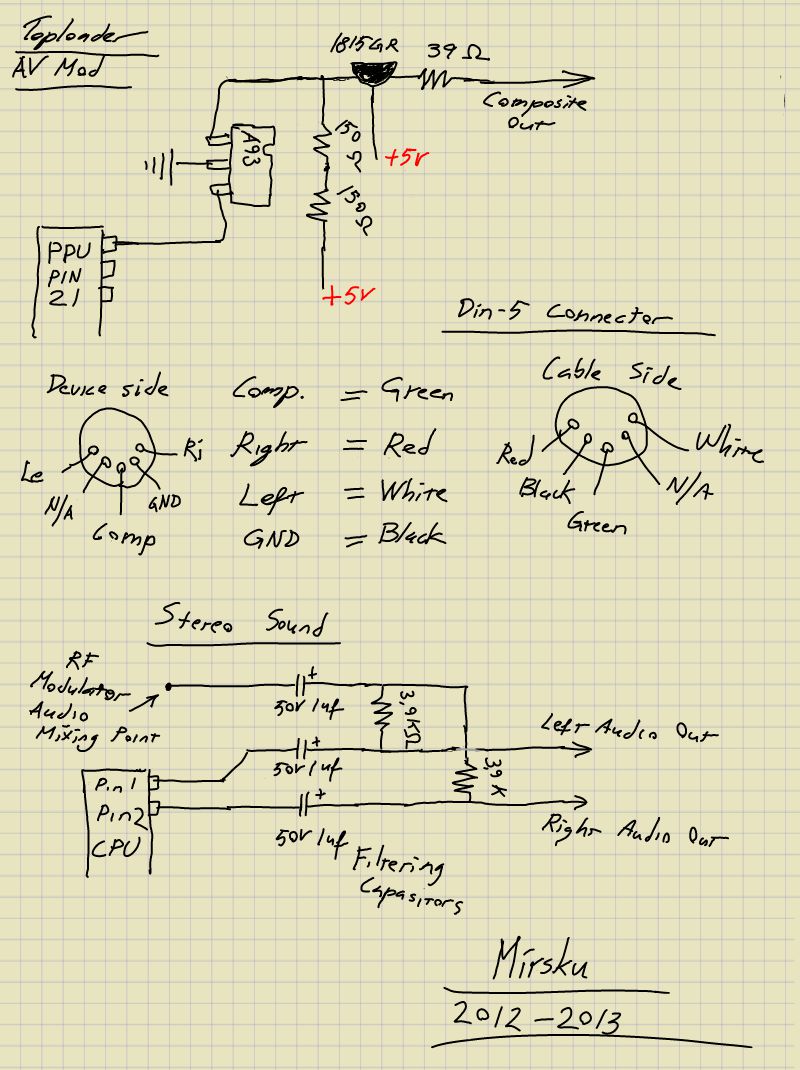 Toploader
AV Mod
1815GR
39 Ω
Composite
Out
A93
150
Ω
+5v
150Ω
+5v
PPU
PIN
21
Din-5 Connector
Device side
Le
N/A
Comp
GND
Ri
Comp. = Green
Right = Red
Left = White
GND = Black
Cable Side
Red
Black
Green
N/A
White
Stereo Sound
RF
Modulator
Audio
Mixing Point
+
50v 1uf
3,9KΩ
Left Audio Out
+
50v 1uf
3,9 K
Pin 1
Pin 2
CPU
+
50v 1uf
Right Audio Out
Filtering
Capasitors
Mirsku
2012-2013